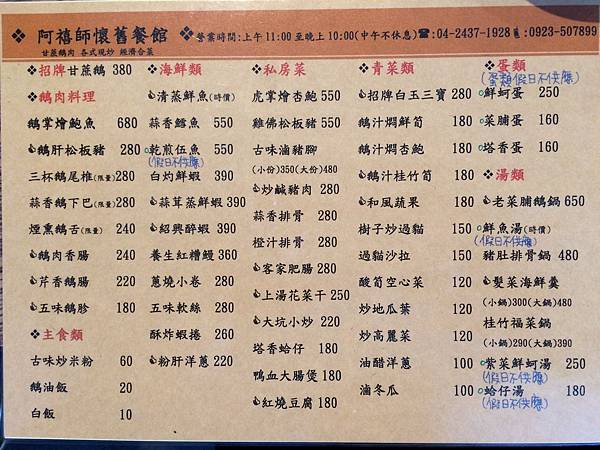 ❖ 阿禧師懷舊餐館
甘蔗鵝肉 各式現炒 經濟合菜
❖營業時間:上午11:00至晚上10:00(中午不休息)☎:04-2437-1928 0923-507899
❖招牌甘蔗鵝 380
❖鵝肉料理
鵝掌燴鮑魚 680
鵝肝松板豬 280
三杯鵝尾椎(限量)280
蒜香鵝下巴(限量)280
煙熏鵝舌(限量) 240
鵝肉香腸 240
芹香鵝腸 220
五味鵝胗 180
❖主食類
古味炒米粉 60
鵝油飯 20
白飯 10
❖海鮮類
清蒸鮮魚(時價)
蒜香鱈魚 550
乾煎伍魚 550
(假日不供應)
白灼鮮蝦 390
蒜茸蒸鮮蝦 390
紹興醉蝦 390
養生紅糟鰻 360
蔥燒小卷 280
五味軟絲 280
酥炸蝦捲 260
粉肝洋蔥 220
❖私房菜
虎掌燴杏鮑 550
雞佛松板豬 550
古味滷豬腳
(小份)350(大份)480
炒鹹豬肉 280
蒜香排骨 280
橙汁排骨 280
客家肥腸 280
上湯花菜干 250
大坑小炒 220
塔香蛤仔 180
鴨血大腸煲 180
紅燒豆腐 180
❖青菜類
招牌白玉三寶 280
鵝汁燜鮮筍 180
鵝汁燜杏鮑 180
鵝汁桂竹筍 180
和風蔬果 180
樹子炒過貓 150
過貓沙拉 150
酸筍空心菜 120
炒地瓜葉 120
炒高麗菜 120
油醋洋蔥 100
滷冬瓜 100
❖蛋類
(蛋類假日不供應)
鮮蚵蛋 250
菜脯蛋 160
塔香蛋 160
❖湯類
老菜脯鵝鍋 650
鮮魚湯(時價)
(假日不供應)
豬肚排骨鍋 480
髮菜海鮮羹
(小鍋)300(大鍋)480
桂竹福菜鍋
(小鍋)290(大鍋)390
紫菜鮮蚵湯 250
(假日不供應)
蛤仔湯 180
(假日不供應)